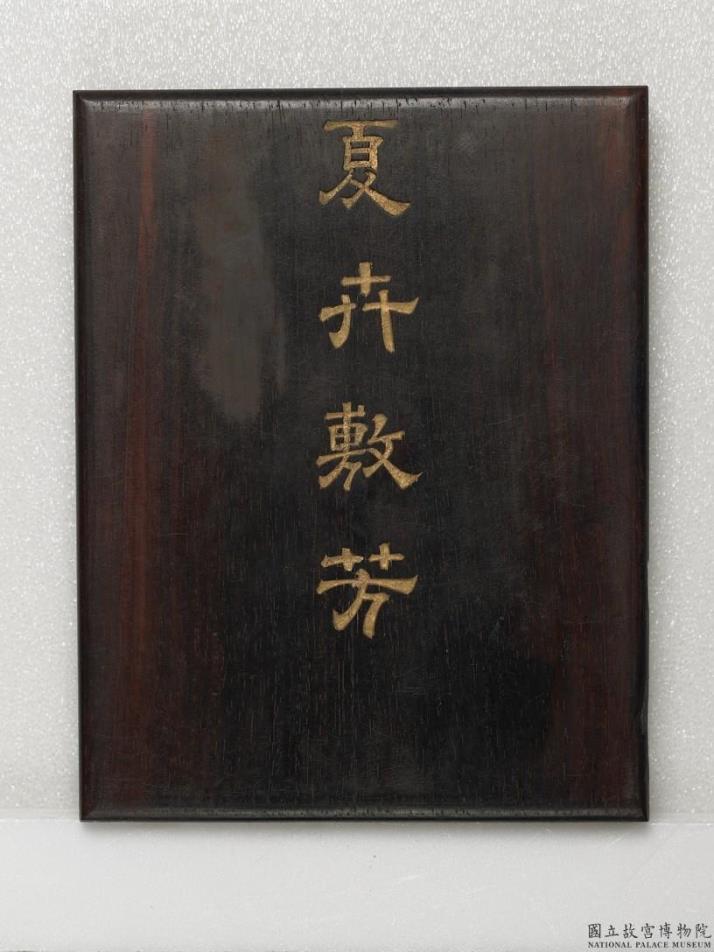 夏卉敷芳
國立故宮博物院
NATIONAL PALACE MUSEUM